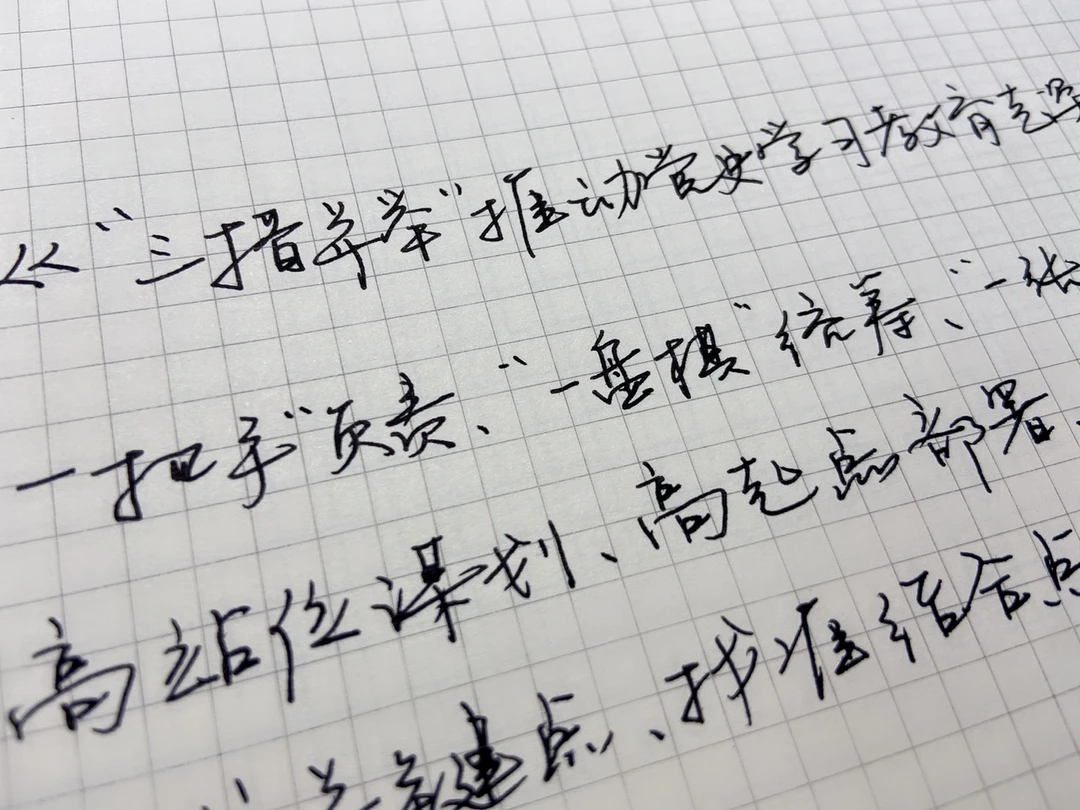 从“三措并举”推动党史学习教育走深
一把手”负责、“一盘棋”统筹、“一张
高站位谋划、高起点部署、
关键点、找准结合点